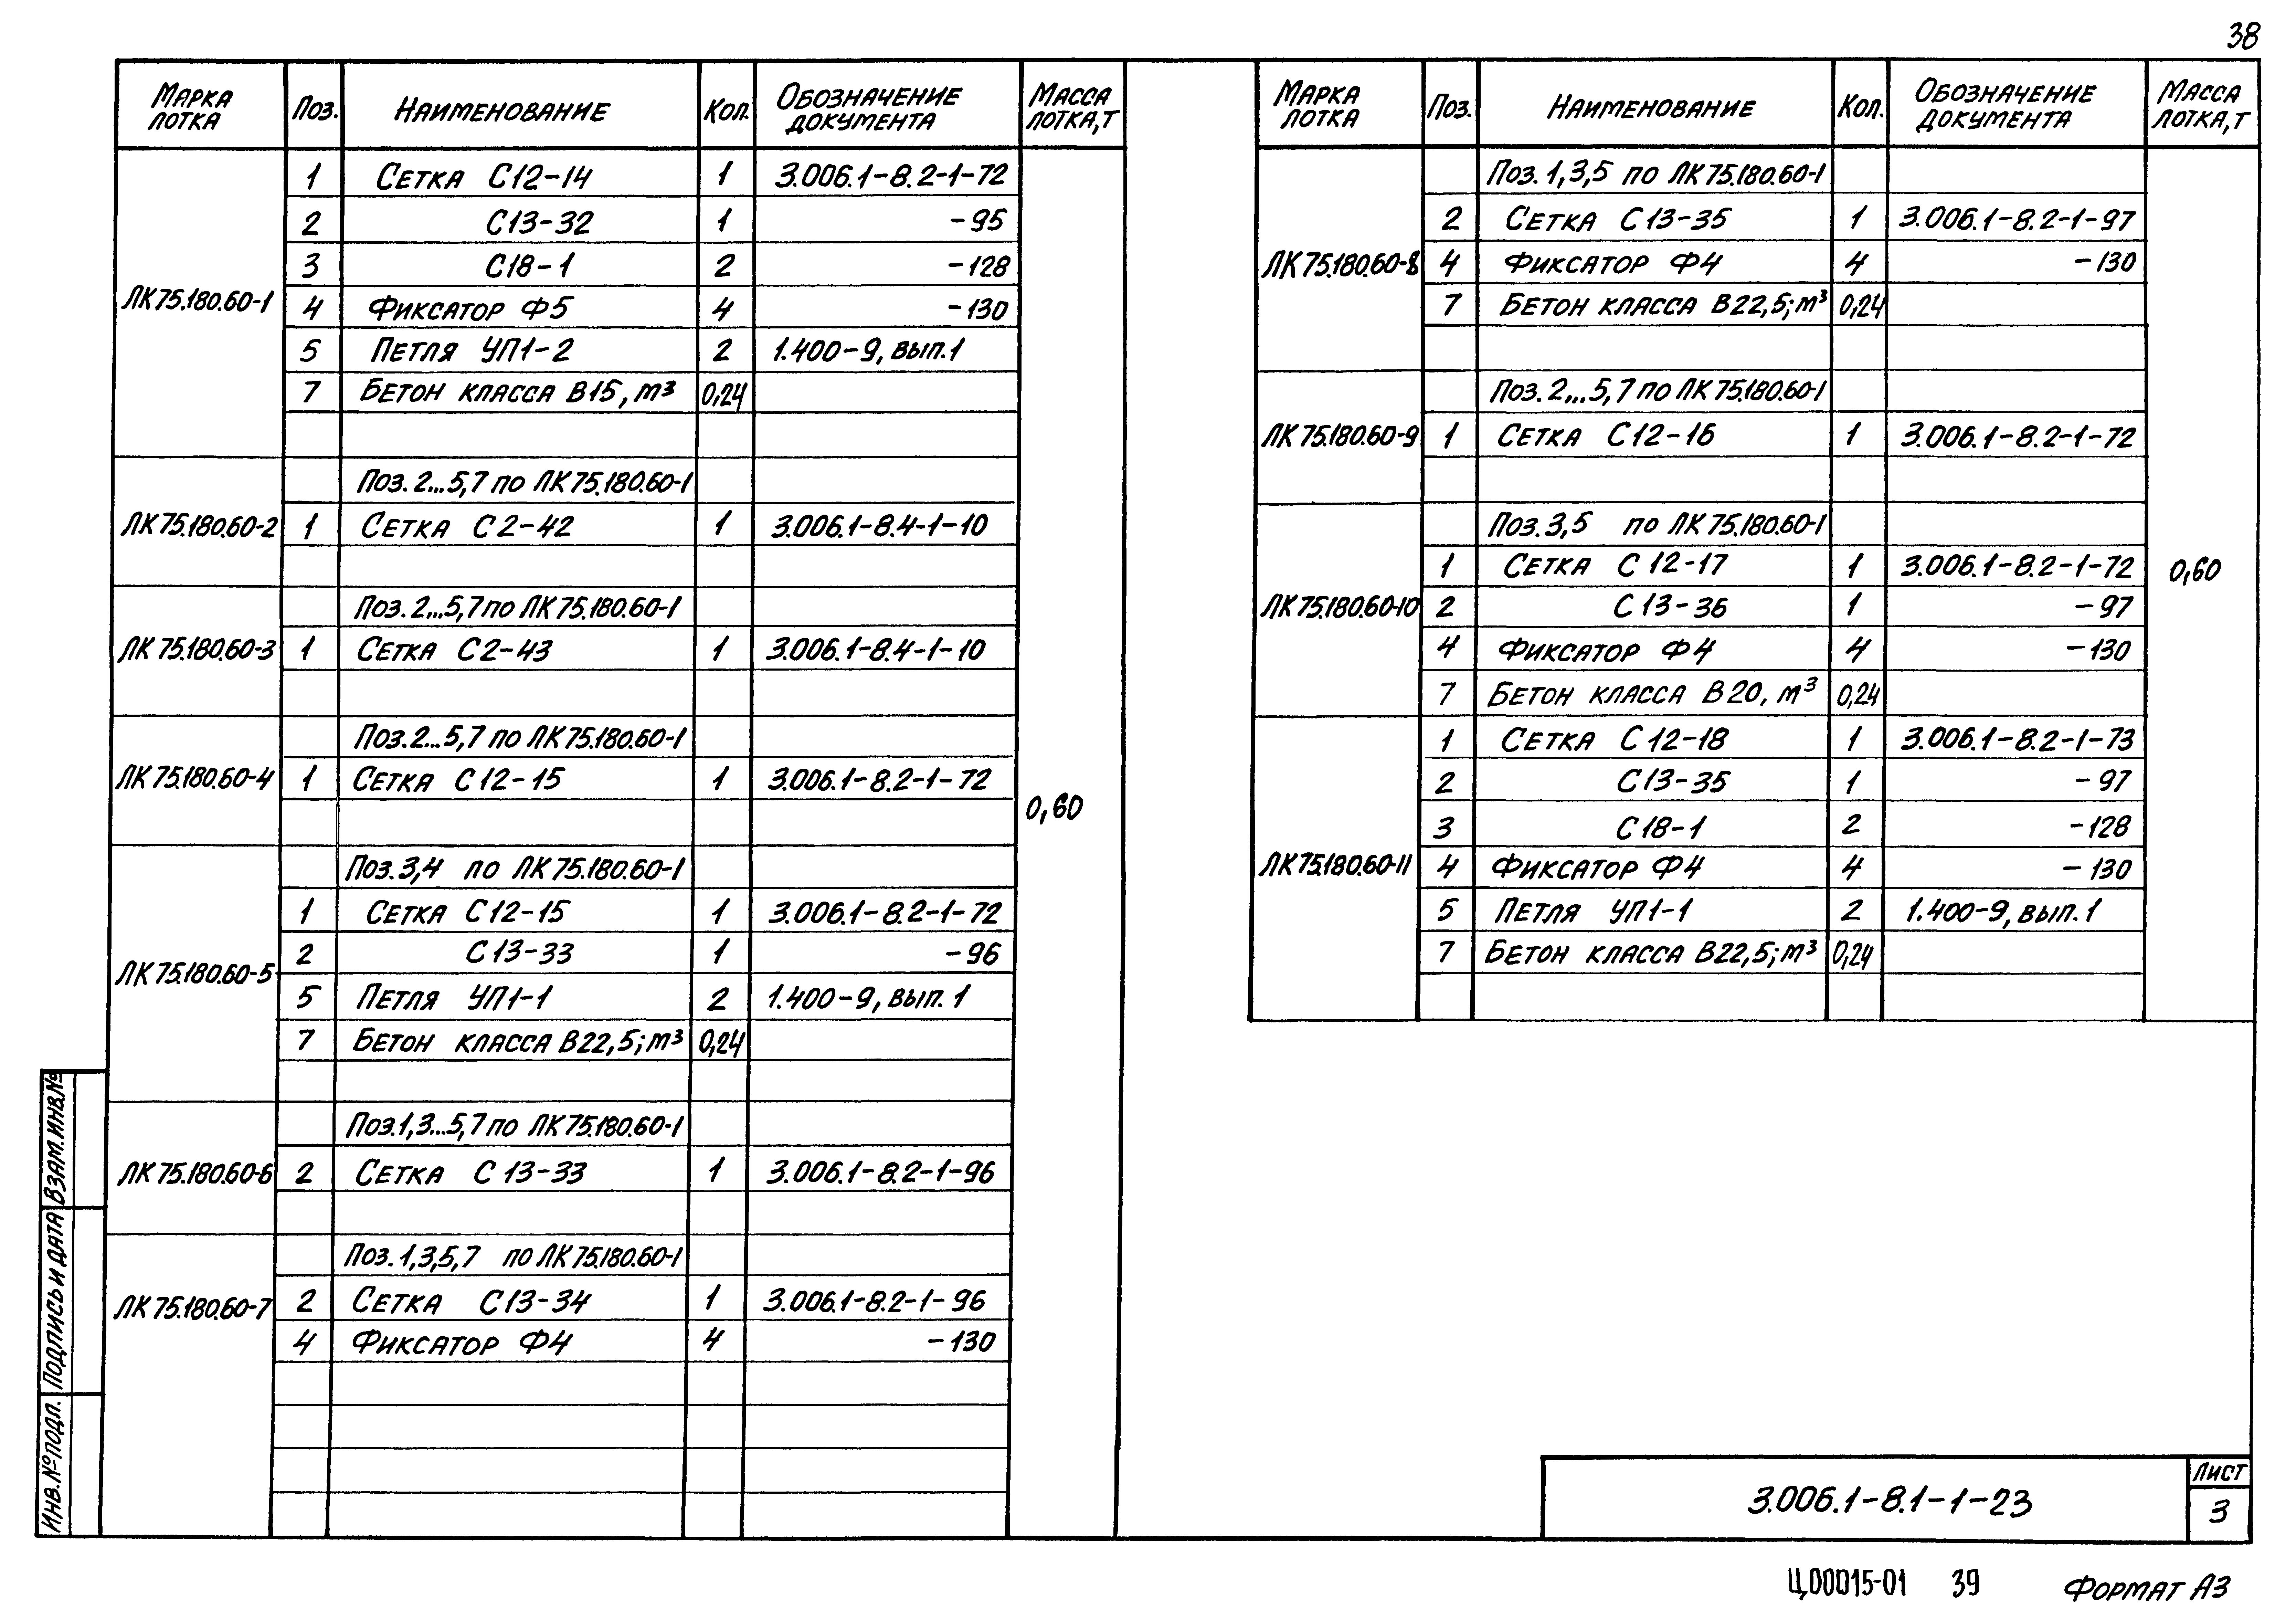 38
Марка лотка | Поз. | Наименование | Кол. | Обозначение документа | Масса лотка, т
ЛК75.180.60-1 | 1 | Сетка С12-14 | 1 | 3.006.1-8.2-1-72 | 0,60
2 | С13-32 | 1 | -95
3 | С18-1 | 2 | -128
4 | Фиксатор Ф5 | 4 | -130
5 | Петля УП1-2 | 2 | 1.400-9, вып.1
7 | Бетон класса В15, м³ | 0,24
ЛК75.180.60-2 | Поз. 2...5,7 по ЛК75.180.60-1
1 | Сетка С2-42 | 1 | 3.006.1-8.4-1-10
ЛК75.180.60-3 | Поз. 2...5,7 по ЛК75.180.60-1
1 | Сетка С2-43 | 1 | 3.006.1-8.4-1-10
ЛК75.180.60-4 | Поз. 2...5,7 по ЛК75.180.60-1
1 | Сетка С12-15 | 1 | 3.006.1-8.2-1-72
ЛК75.180.60-5 | Поз. 3,4 по ЛК75.180.60-1
1 | Сетка С12-15 | 1 | 3.006.1-8.2-1-72
2 | С13-33 | 1 | -96
5 | Петля УП1-1 | 2 | 1.400-9, вып. 1
7 | Бетон класса В22,5; м³ | 0,24
ЛК75.180.60-6 | Поз.1,3...5,7 по ЛК75.180.60-1
2 | Сетка С13-33 | 1 | 3.006.1-8.2-1-96
ЛК75.180.60-7 | Поз. 1,3,5,7 по ЛК75.180.60-1
2 | Сетка С13-34 | 1 | 3.006.1-8.2-1-96
4 | Фиксатор Ф4 | 4 | -130
Марка лотка | Поз. | Наименование | Кол. | Обозначение документа | Масса лотка, т
ЛК75.180.60-8 | Поз. 1,3,5 по ЛК75.180.60-1 | 0,60
2 | Сетка С13-35 | 1 | 3.006.1-8.2-1-97
4 | Фиксатор Ф4 | 4 | -130
7 | Бетон класса В22,5; м³ | 0,24
ЛК75.180.60-9 | Поз. 2...5,7 по ЛК75.180.60-1
1 | Сетка С12-16 | 1 | 3.006.1-8.2-1-72
ЛК75.180.60-10 | Поз. 3,5 по ЛК75.180.60-1
1 | Сетка С12-17 | 1 | 3.006.1-8.2-1-72
2 | С13-36 | 1 | -97
4 | Фиксатор Ф4 | 4 | -130
7 | Бетон класса В20, м³ | 0,24
ЛК75.180.60-11 | 1 | Сетка С12-18 | 1 | 3.006.1-8.2-1-73
2 | С13-35 | 1 | -97
3 | С18-1 | 2 | -128
4 | Фиксатор Ф4 | 4 | -130
5 | Петля УП1-1 | 2 | 1.400-9, вып. 1
7 | Бетон класса В22,5; м³ | 0,24
Взам. инв.№
Подпись и дата
Инв. № подл.
3.006.1-8.1-1-23
Лист
3
Ц00015-01 39 Формат А3